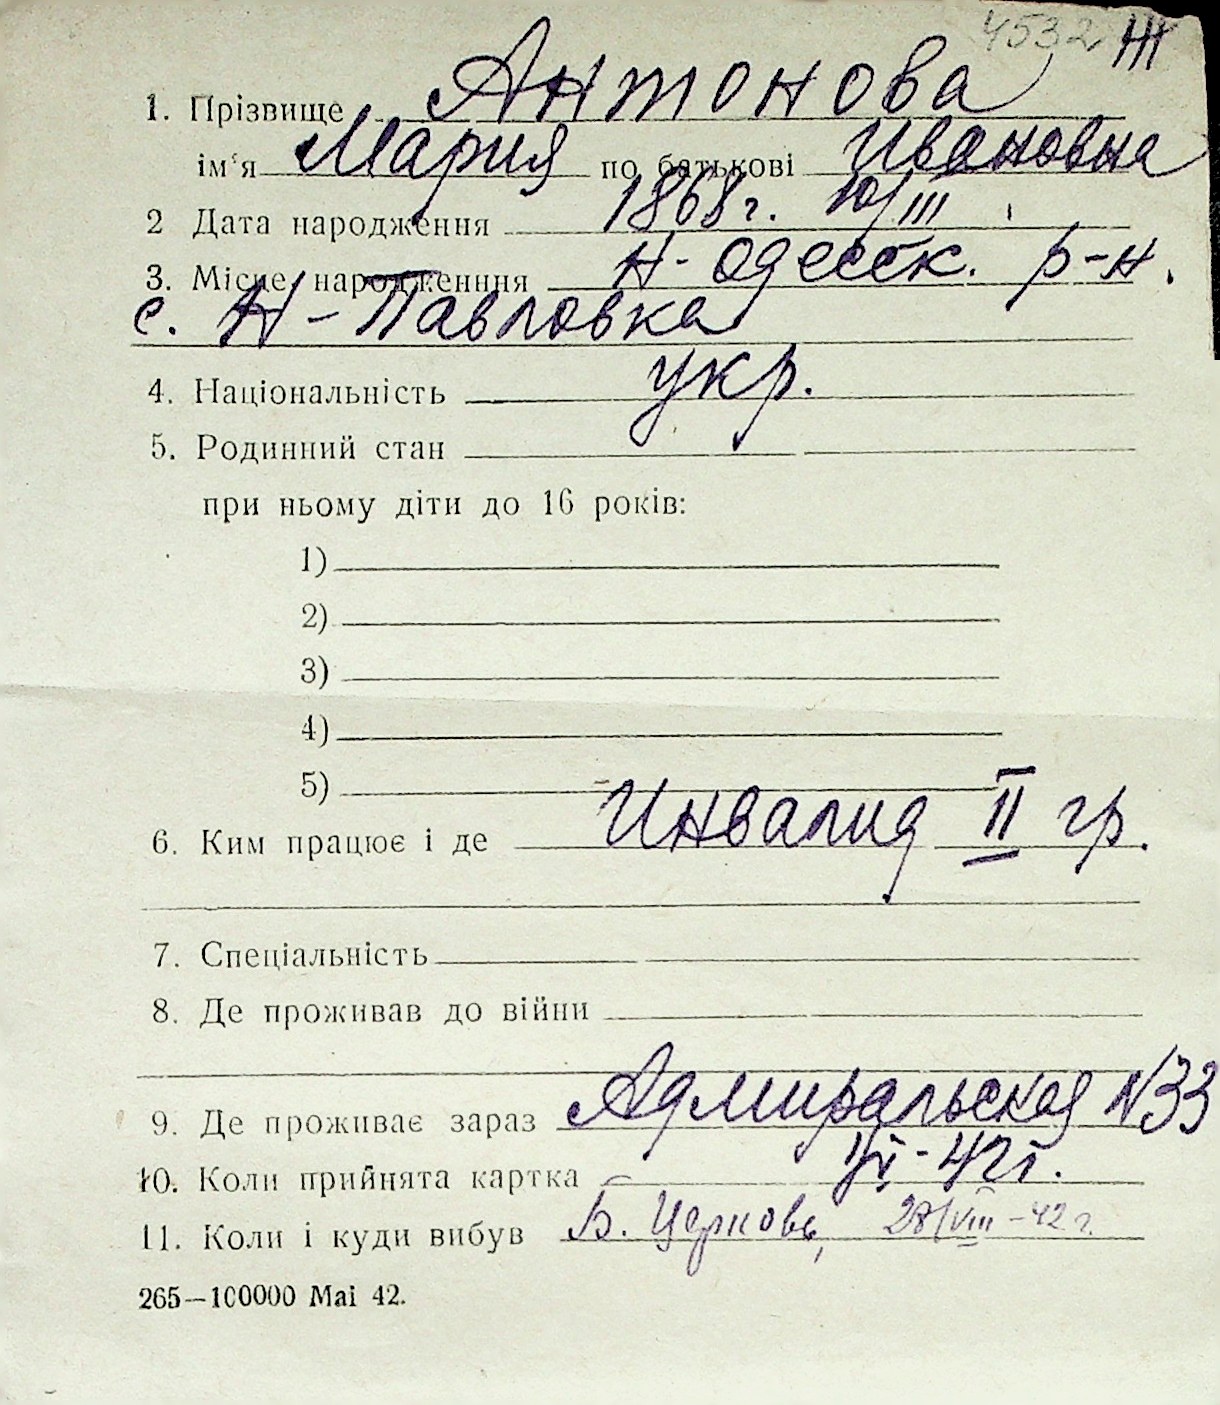 4532 Ж
1. Прізвище Антонова
ім'я Мария по батькові Ивановна
2 Дата народження 1868 г. 10/III
3. Місце народженння Н-Одесск. р-н.
с. Н-Павловка
4. Національність укр.
5. Родинний стан
при ньому діти до 16 років:
1)
2)
3)
4)
5)
6. Ким працює і де Инвалид II гр.
7. Спеціальність
8. Де проживав до війни
9. Де проживає зараз Адмиральская N33
10. Коли прийнята картка 1/VI-42 г.
11. Коли і куди вибув Б. Церковь, 28/VIII-42 г.
265—100000 Mai 42.